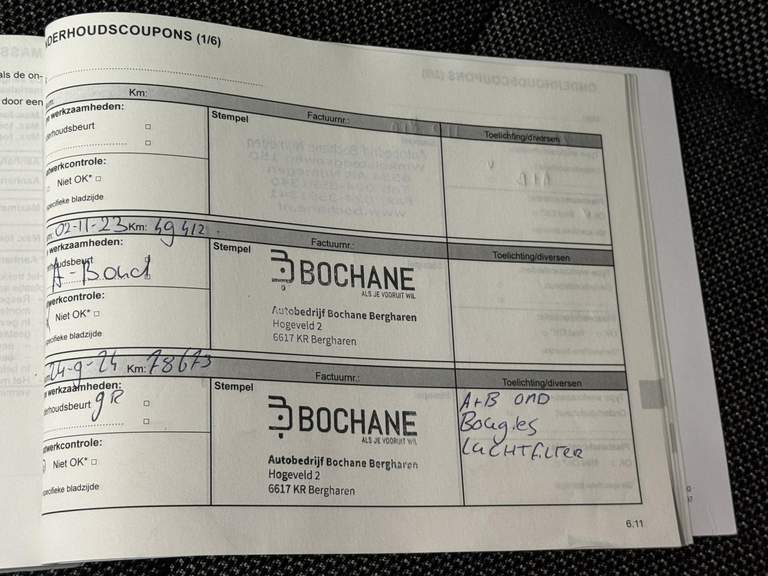 NDERHOUDSCOUPONS (1/6)
als de on-
door een
Km: Factuurnr.:
werkzaamheden: Stempel Toelichting/diversen
erhoudsbeurt
werkcontrole:
Niet OK*
pecifieke bladzijde
02-11-23 Km: 49412 Factuurnr.:
werkzaamheden: Stempel Toelichting/diversen
houdsbeurt
A-Bond
BOCHANE
ALS JE VOORUIT WIL
werkcontrole:
Autobedrijf Bochane Bergharen
Niet OK*
Hogeveld 2
6617 KR Bergharen
pecifieke bladzijde
24-9-24 Km: 78673 Factuurnr.:
werkzaamheden: Stempel Toelichting/diversen
erhoudsbeurt gR
A+B OND
BOCHANE
Bougies
ALS JE VOORUIT WIL
LUCHTFILTER
werkcontrole:
Autobedrijf Bochane Bergharen
Niet OK*
Hogeveld 2
6617 KR Bergharen
pecifieke bladzijde
6.11